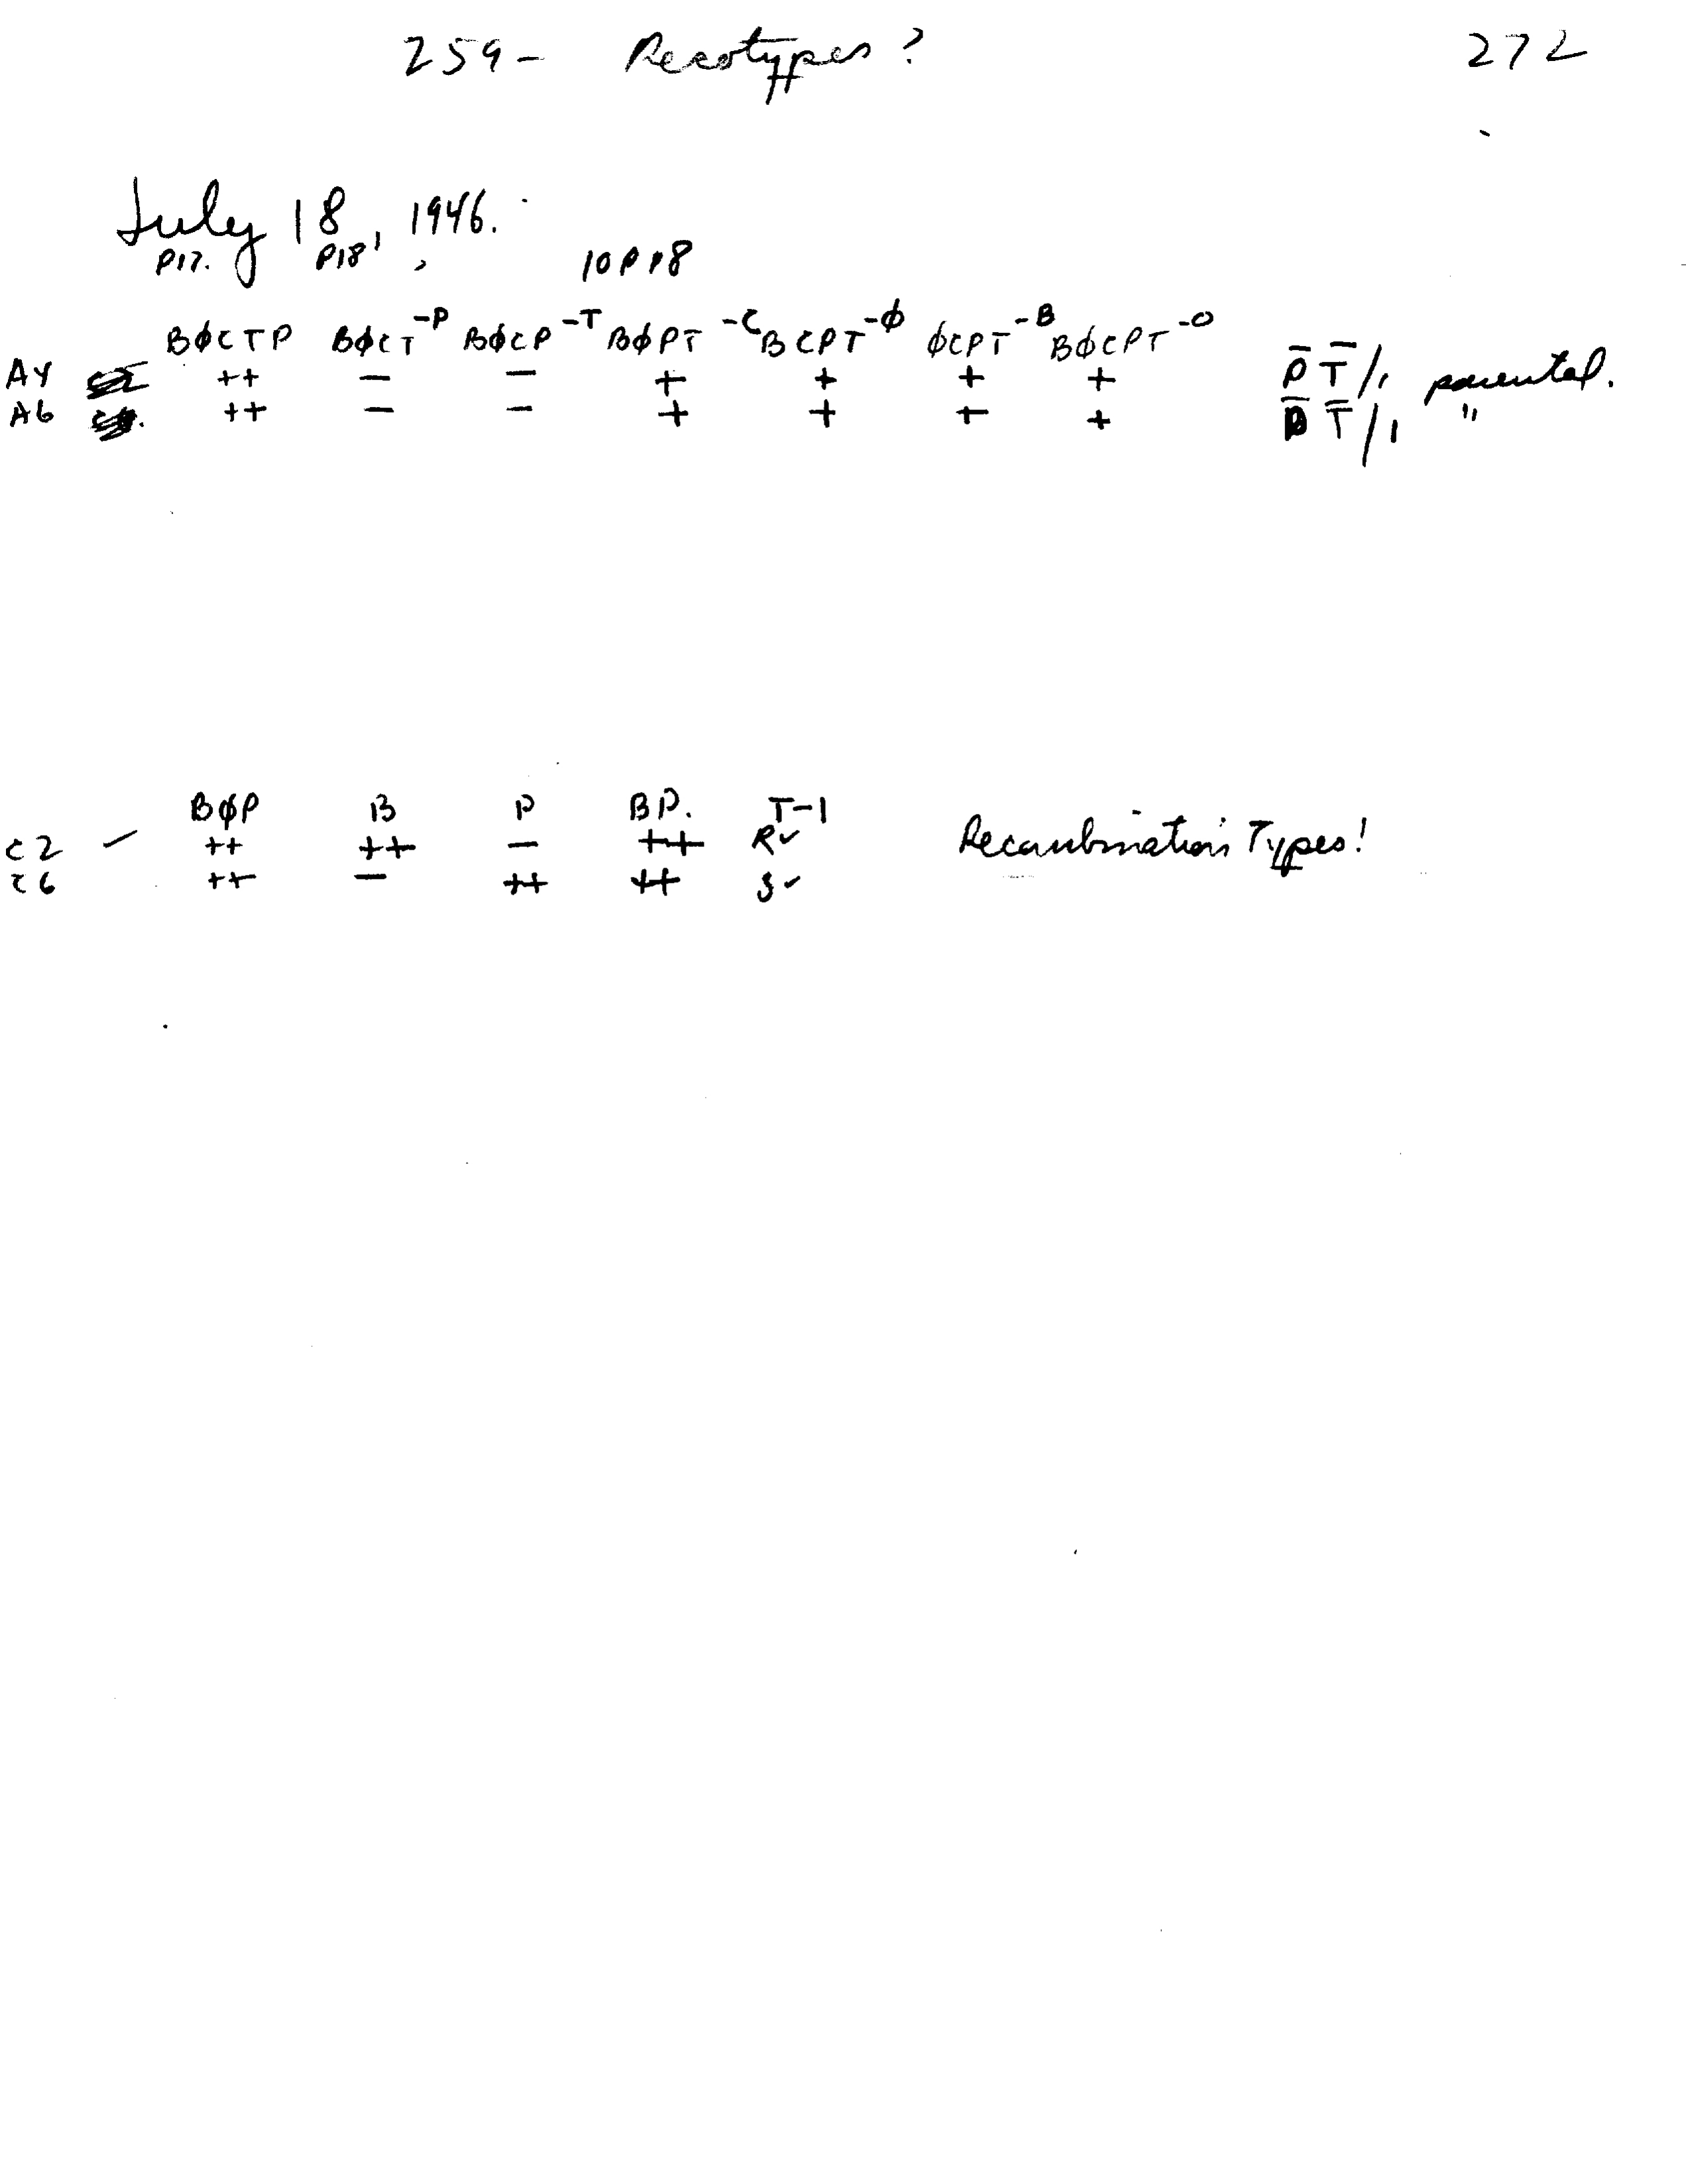 259- Recotypes? 272
July 18, 1946.
P17. P18, 10 P P18
BφCTP BφCT-P BφCP-T BφPT-C BCPT-φ φCPT-B BφCPT-O
A4 ++ - - + + + + P̄ T̄/1 parental.
A6 ++ - - + + + + P̄ T̄/1 "
BφP B P BP. T-1
C2 - ++ ++ - ++ R✓ Recombination Types!
C6 ++ - ++ ++ S✓